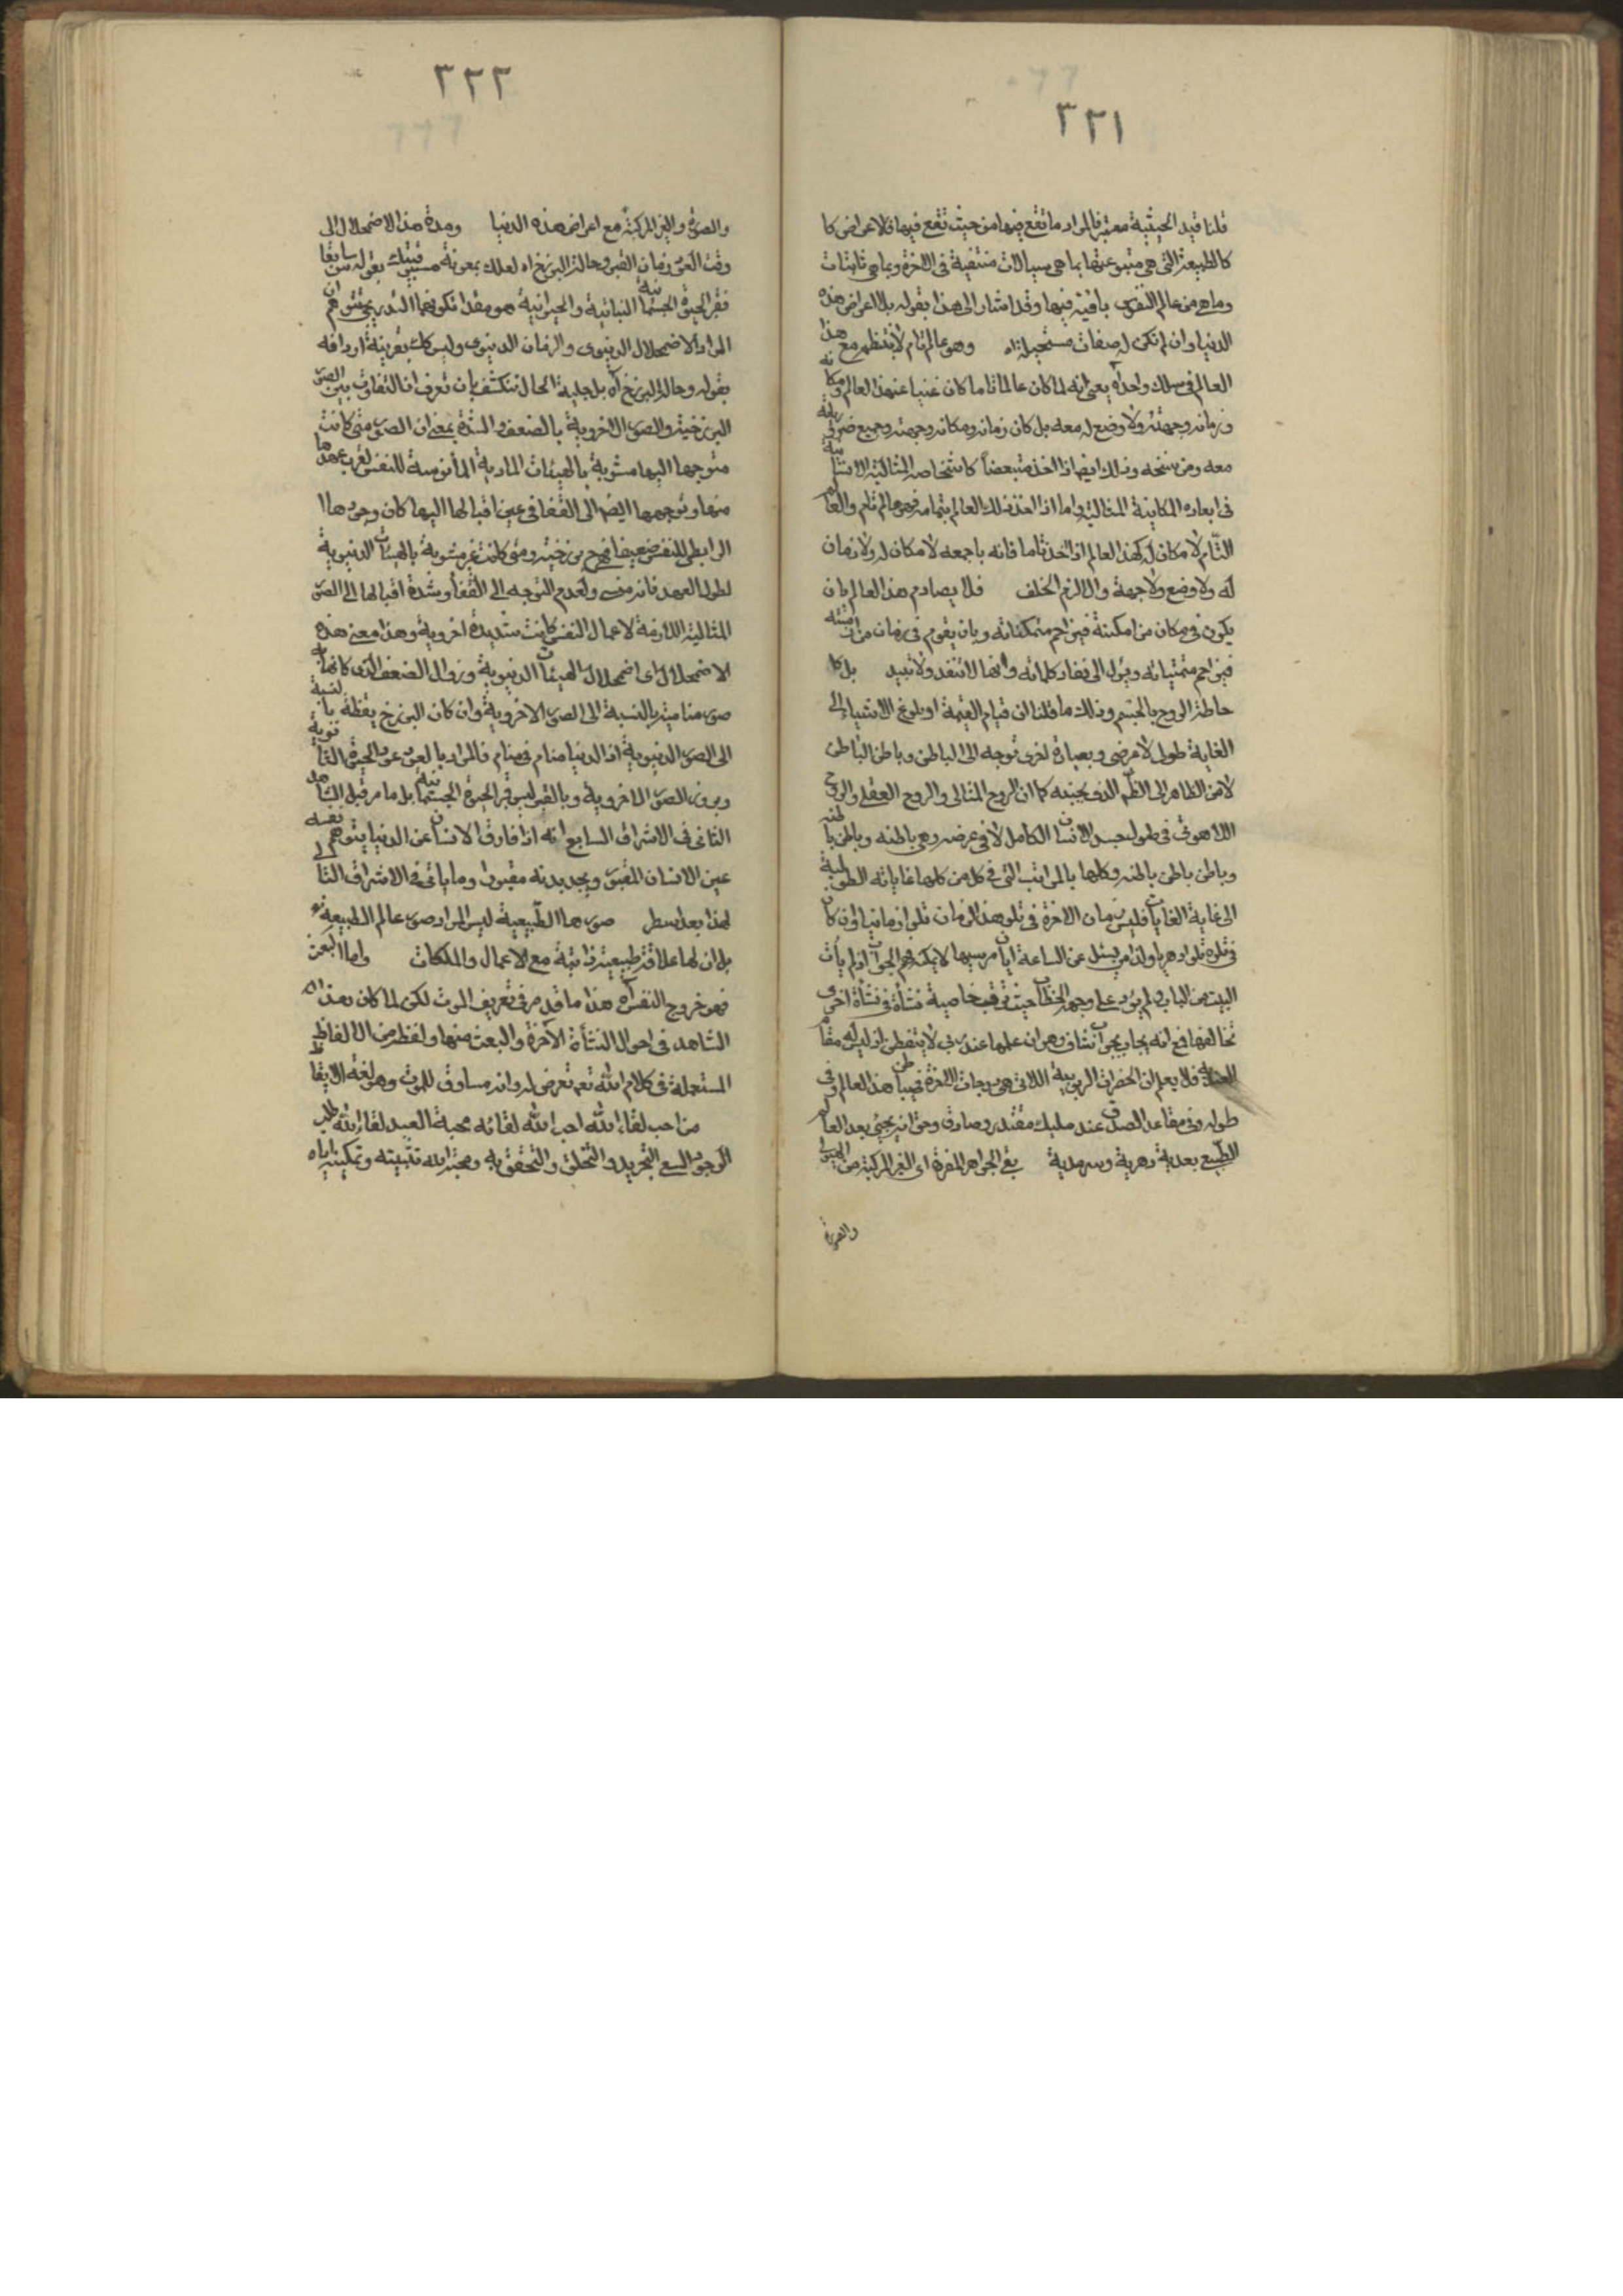 ٣٢١
قلنا قيد الحيثية معتبر فالمراد ما تقع فيها من حيث تقع فيها فالاعراض كا
كالطبيعة التى هى متبوعتها بما هى سيالات منتفية فى الاخرة وبما هى ثابتات
وما هى من عالم النفوس باقية فيها وقد اشار الى هذا بقوله بلا اعراض هذه
الدنيا وان لم تكن له صفات مستحيلة اه وهو عالم تام لا ينتظم مع هذا
العالم فى سلك واحد اه يعنى انه لما كان عالما تاما كان غنيا عن هذا العالم ومكانه
وزمانه وجهته ولا وضع له معه بل كان زمانه ومكانه وجهته وجميع ضرورياته
معه ومن سنخه وذلك ايضا اذا اخذ متبعضا كاشخاصه المثالية الانسانية
فى ابعاده المكانية المثالية واما اذا اخذ ذلك العالم بتمامه فهو عالم تام والعالم
التام لا مكان له كهذا العالم اذا اخذ تاما فانه باجمعه لا مكان له ولا زمان
له ولا وضع ولا جهة والا لزم الخلف فلا يصادم هذا العالم بان
يكون فى مكان من امكنته فيزاحم متمكناته وبان يقوم فى زمان من ازمنته
فيزاحم متمتياته ويؤل الى نفاد كلماته وانها لا تنفد ولا تبيد بل كا
حاطة الروح بالجسم وذلك ما قلنا ان قيام القيمة او بلوغ الاشياء الى
الغاية طولى لا عرضى وبعبارة اخرى توجه الى الباطن وباطن الباطن
لا من الظاهر الى الظهر الذى بجنبه كما ان الروح المثالى والروح العقلى والروح
اللاهوتى فى طول جسد الانسان الكامل لا فى عرضه وهى باطنه وباطن باطنه
وباطن باطن باطنه وكلها بالمراتب التى فى كل من كلها غاياته الطولية
الى غاية الغايات فليس زمان الاخرة فى تلو هذا الزمان تلوا زمانيا وان كان
فى تلوه تلوا دهريا ولذا من يسئل عن الساعة ايان مرسيها لا يمكنه فهم الجواب اذ لم يأت
البيت من الباب ولم يؤد على وجه الخطاب حيث ترقب خاصية نشأة فى نشأة اخرى
تخالفها فمع انه يجاب بجواب شاف وهو ان علمها عند ربى لا يتفطن اذ ليس له مقام
العندية فلا يعلم ان الحضرات الربوبية اللاتى هى درجات الاخرة فى باطن هذا العالم وفى
طوله وفى مقاعد الصدق عند مليك مقتدر وصادق وحق انه يجيئ بعد العالم
الطبيعى بعدية دهرية وسرمدية بقى الجواهر المفردة اى الغير المركبة من الهيولى
والصورة
٣٢٢
والصورة والغير المركبة مع اعراض هذه الدنيا ومدة هذا الاضمحلال الى
وقت العود زمان القبر وحالة البرزخ اه لعلك بمعونة مسبوقيتك بقوله سابقا
فقبر الحيوة الجسمانية النباتية والحيوانية هو مقدار تكونهما التدريجى تتوهم ان
المراد الاضمحلال الدنيوى والزمان الدنيوى وليس كذلك بقرينة اردافه
بقوله وحالة البرزخ اه بل جلية الحال تنكشف بان تعرف ان التفاوت بين الصور
البرزخية والصور الاخروية بالضعف والشدة بمعنى ان الصور متى كانت
متوجها اليها مشوبة بالهيئات المادية المأنوسة للنفس لقرب عهدها
منها وتوجهها ايضا الى القفا فى عين اقبالها اليها كان وجودها
الرابطى للنفس ضعيفا فهى برزخية ومتى كانت غير مشوبة بالهيئات الدنيوية
لطول العهد فانه منسى ولعدم التوجه الى القفا وشدة اقبالها الى الصور
المثالية اللازمة لاعمال النفس كانت شديدة اخروية وهذا معنى هذه
الاضمحلال اى اضمحلال الهيئات الدنيوية وزوال الضعف الذى كانها به
صور منامية بالنسبة الى الصور الاخروية وان كان البرزخ يقظة بالنسبة
الى الصور الدنيوية اذ الدنيا منام فى منام فالمراد بالعود عود الحيوة الثانوية
وبروز الصور الاخروية وبالقبر ليس قبر الحيوة الجسمانية بل ما مر قبل الشاهد
الثانى فى الاشراق السابع انه اذا فارق الانسان عن الدنيا يتوهم نفسه
عين الانسان المقبور ويجد بدنه مقبورا وما يأتى فى الاشراق التالى
لهذا بعد اسطر صورها الطبيعية ليس المراد صور عالم الطبيعة
بل ان لها علاقة طبيعية ذاتية مع الاعمال والملكات واما البعث
فهو خروج النفس اه هذا ما قد مر فى تعريف الموت لكن لما كان هذا
الشاهد فى احوال النشأة الآخرة والبعث منها ولفظه من الالفاظ
المستعملة فى كلام الله تعالى تعرض له وانه مساوق للموت وهو لغة الايقاظ
من احب لقاء الله احب الله لقائه محبة العبد لقاء الله طلب
الوجود السعى التجرد والتخلق والتحقق به ومحبة الله تثبيته وتمكينه اياه